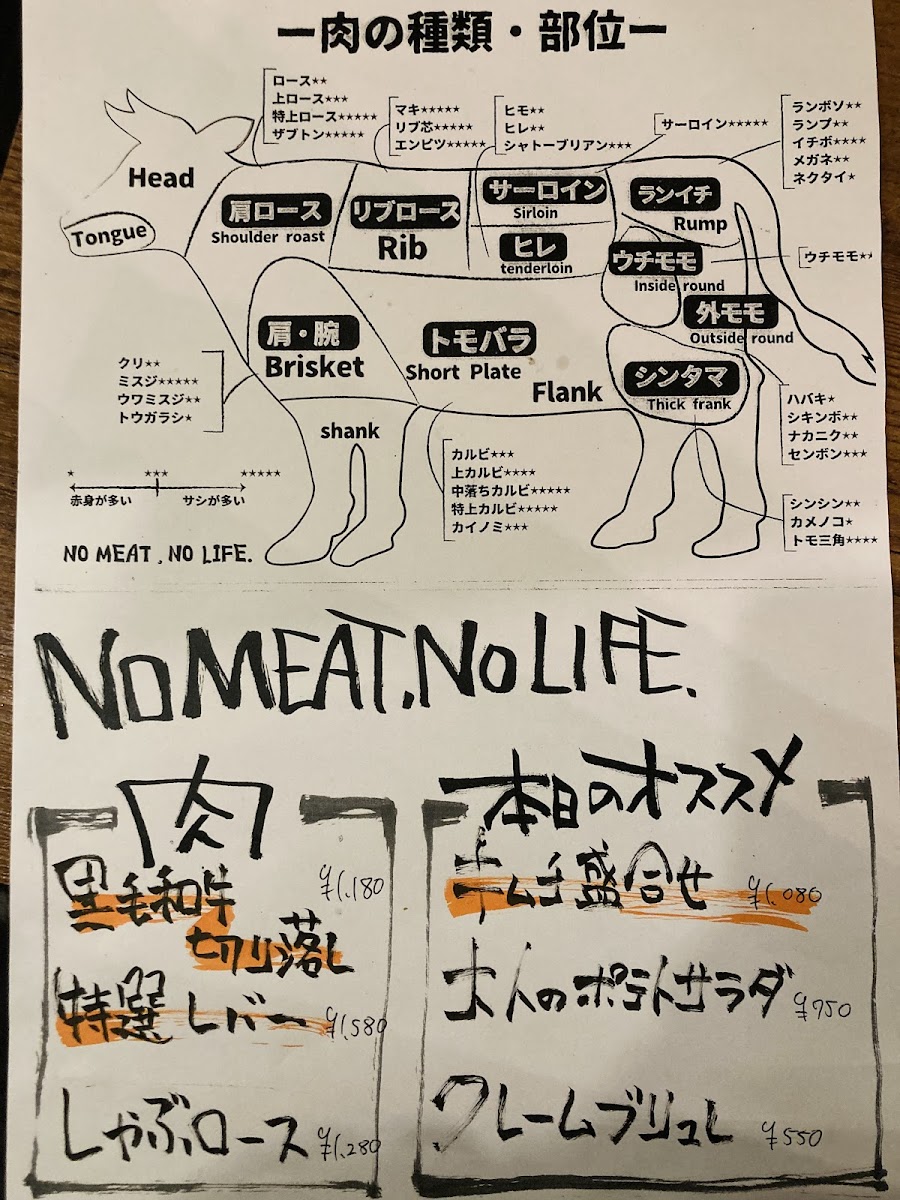 ー肉の種類・部位ー
ロース★★
上ロース★★★
特上ロース★★★★★
ザブトン★★★★★
マキ★★★★★
リブ芯★★★★★
エンピツ★★★★★
ヒモ★★
ヒレ★★
シャトーブリアン★★★
サーロイン★★★★★
ランボソ★★
ランプ★★
イチボ★★★★
メガネ★★
ネクタイ★
Head
Tongue
肩ロース
Shoulder roast
リブロース
Rib
サーロイン
Sirloin
ヒレ
tenderloin
ランイチ
Rump
ウチモモ
Inside round
ウチモモ★★
外モモ
Outside round
肩・腕
Brisket
トモバラ
Short Plate
Flank
シンタマ
Thick frank
shank
クリ★★
ミスジ★★★★★
ウワミスジ★★
トウガラシ★
カルビ★★★
上カルビ★★★★
中落ちカルビ★★★★★
特上カルビ★★★★★
カイノミ★★★
ハバキ★
シキンボ★★
ナカニク★★
センボン★★★
シンシン★★
カメノコ★
トモ三角★★★★
★ ★★★ ★★★★★
赤身が多い サシが多い
NO MEAT , NO LIFE.
NO MEAT. NO LIFE.
肉
黒毛和牛 ¥1,180
切り落し
特選レバー ¥1,580
しゃぶロース ¥1,280
本日のオススメ
キムチ盛合せ ¥1,080
大人のポテトサラダ ¥750
クレームブリュレ ¥550